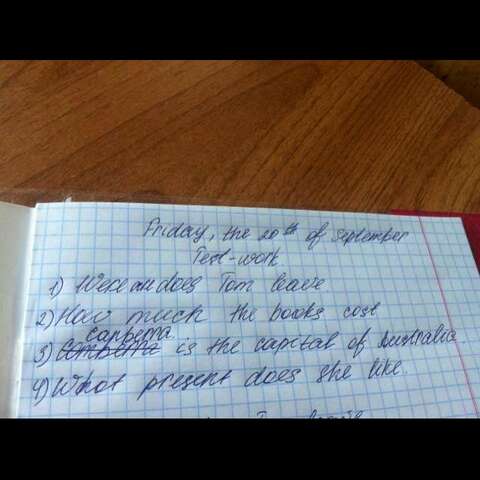 Friday, the 20th of september
Test-work
1) does Tom leave
2) How much the books cost
canberra
3) is the capital of Australia.
4) What present does she like.